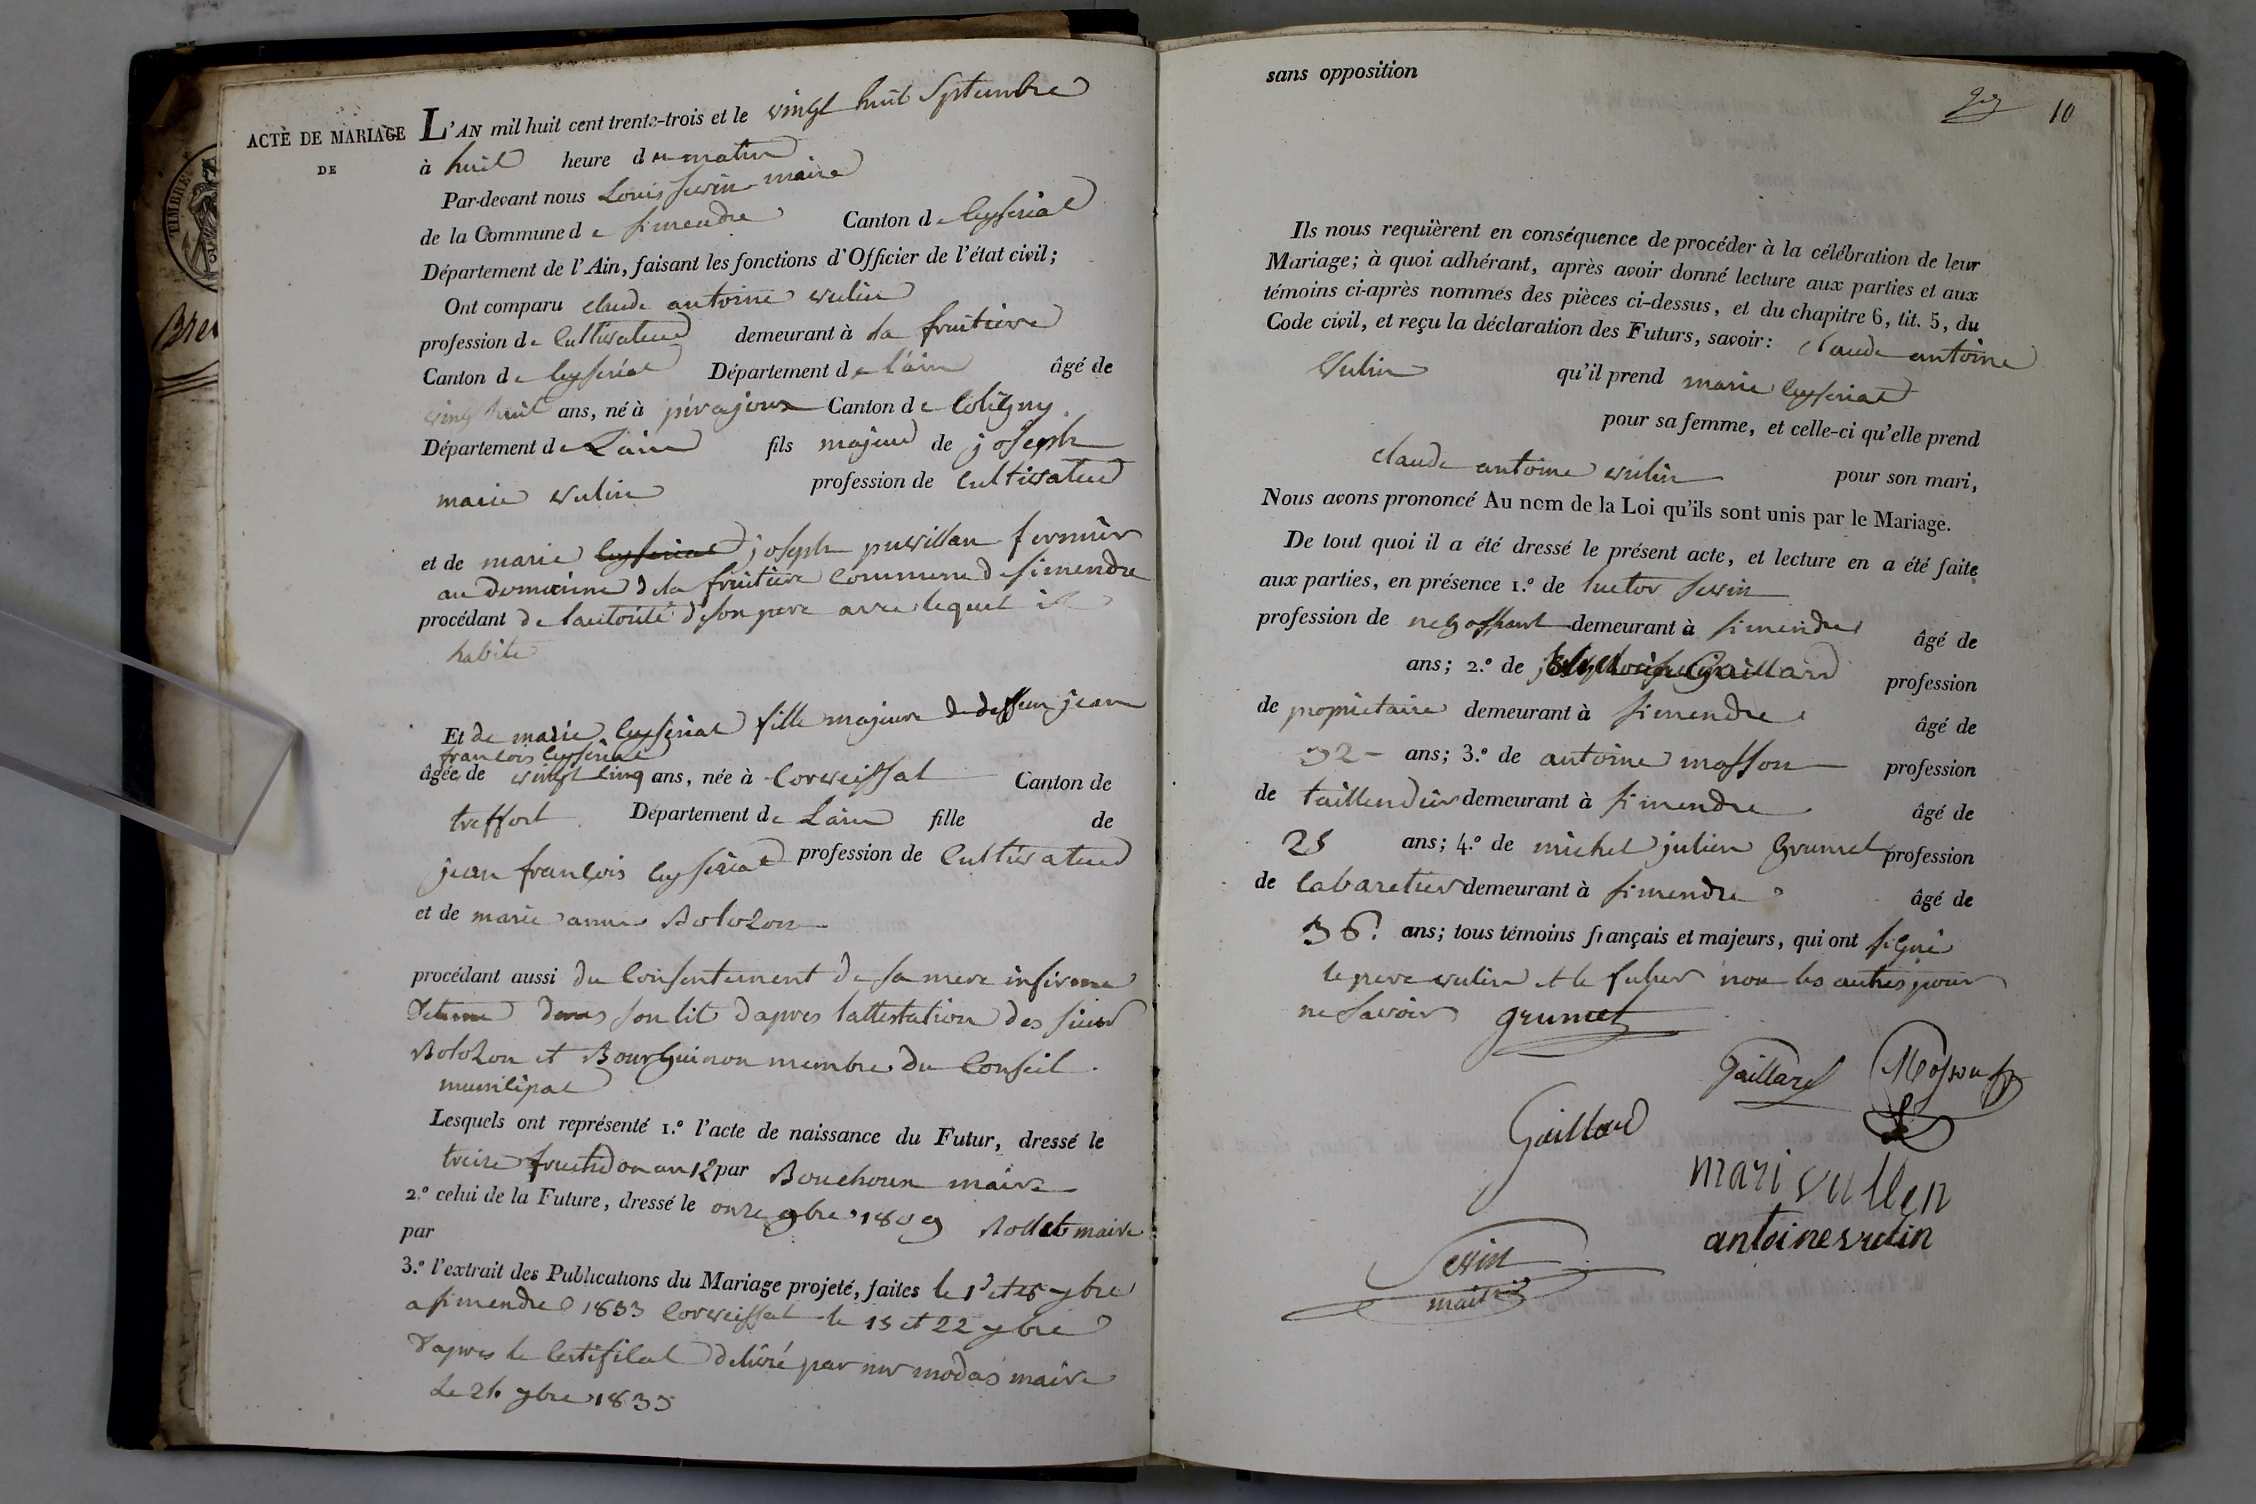 ACTE DE MARIAGE
DE
TIMBRE
L'AN mil huit cent trente-trois et le vingt huit Septembre
à huit heure du matin
Par-devant nous Louis Sevin maire
de la Commune de simendre Canton de Ceyseriat
Département de l'Ain, faisant les fonctions d'Officier de l'état civil;
Ont comparu claude antoine vulin
profession de Cultivateur demeurant à la fruitiere
Canton de Ceyseriat Département de l'ain âgé de
vingt huit ans, né à pirajoux Canton de Coligny
Département de Lain fils majeur de joseph
marie vulin profession de Cultivateur
et de marie joseph puvillan fermier
au domaine de la fruitiere Commune de simendre
procédant de lautorité de son pere avec lequel il
habite
Et de marie Ceyseriat fille majeure de deffun jean
francois Ceyseriat
âgée de vingt Cinq ans, née à Corveissat Canton de
treffort Département de Lain fille de
jean francois Ceyseriat profession de Cultivateur
et de marie anne Bolozon
procédant aussi du Consentement de sa mere infirme
detenue dans son lit dapres lattestation des sieur
Bolozon et Bourguinon membre du Conseil
municipal
Lesquels ont représenté 1.º l'acte de naissance du Futur, dressé le
treize fructidor an 12 par Bouchoux maire
2.º celui de la Future, dressé le onze 9bre 1809 Rollet maire
par
3.º l'extrait des Publications du Mariage projeté, faites le 1er et 8 7bre
a simendre 1833 Corveissat le 15 et 22 7bre
dapres le Certificat delivré par mr modas maire
Le 26 7bre 1833
sans opposition
10
Ils nous requièrent en conséquence de procéder à la célébration de leur
Mariage; à quoi adhérant, après avoir donné lecture aux parties et aux
témoins ci-après nommés des pièces ci-dessus, et du chapitre 6, tit. 5, du
Code civil, et reçu la déclaration des Futurs, savoir: claude antoine
Vulin qu'il prend marie Ceyseriat
pour sa femme, et celle-ci qu'elle prend
claude antoine vulin pour son mari,
Nous avons prononcé Au nom de la Loi qu'ils sont unis par le Mariage.
De tout quoi il a été dressé le présent acte, et lecture en a été faite
aux parties, en présence 1.º de hector Sevin
profession de negossiant demeurant à simendre âgé de
ans; 2.º de Gaillard profession
de proprietaire demeurant à simendre âgé de
32 ans; 3.º de antoine mosson profession
de taillendier demeurant à simendre âgé de
25 ans; 4.º de michel julien Grumet profession
de Cabaretier demeurant à simendre âgé de
36. ans; tous témoins français et majeurs, qui ont signé
le pere vulin et le futur non les autres pour
ne savoir grumet
Gaillard Mosson
Gaillard
mari vullen
antoine vulin
Sevin
maire